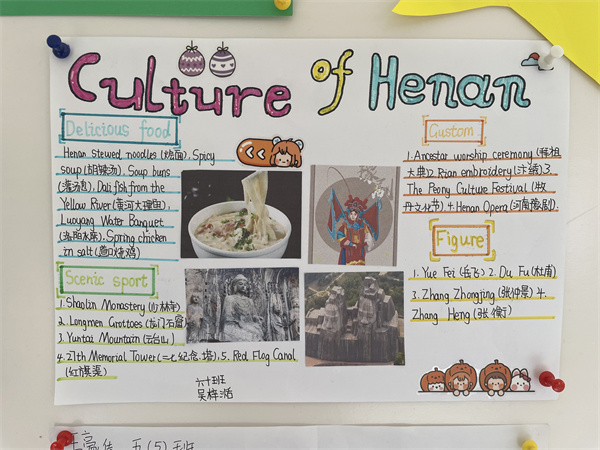 Culture of Henan
Delicious food
Henan stewed noodles (烩面), Spicy
soup (胡辣汤), Soup buns
(灌汤包), Dali fish from the
Yellow River (黄河大理鱼),
Luoyang Water Banquet
(洛阳水席), Spring chicken
in salt (道口烧鸡)
Scenic sport
1. Shaolin Monastery (少林寺)
2. Longmen Grottoes (龙门石窟)
3. Yuntai Mountain (云台山)
4. 27th Memorial Tower (二七纪念塔), 5. Red Flag Canal
(红旗渠)
Gustom
1. Ancestor worship ceremony (拜祖
大典) 2. Bian embroidery (汴绣) 3.
The Peony Culture Festival (牡
丹文化节) 4. Henan Opera (河南豫剧).
Figure
1. Yue Fei (岳飞) 2. Du Fu (杜甫)
3. Zhang Zhongjing (张仲景) 4.
Zhang Heng (张衡)
六十班
吴梓
五(5)班